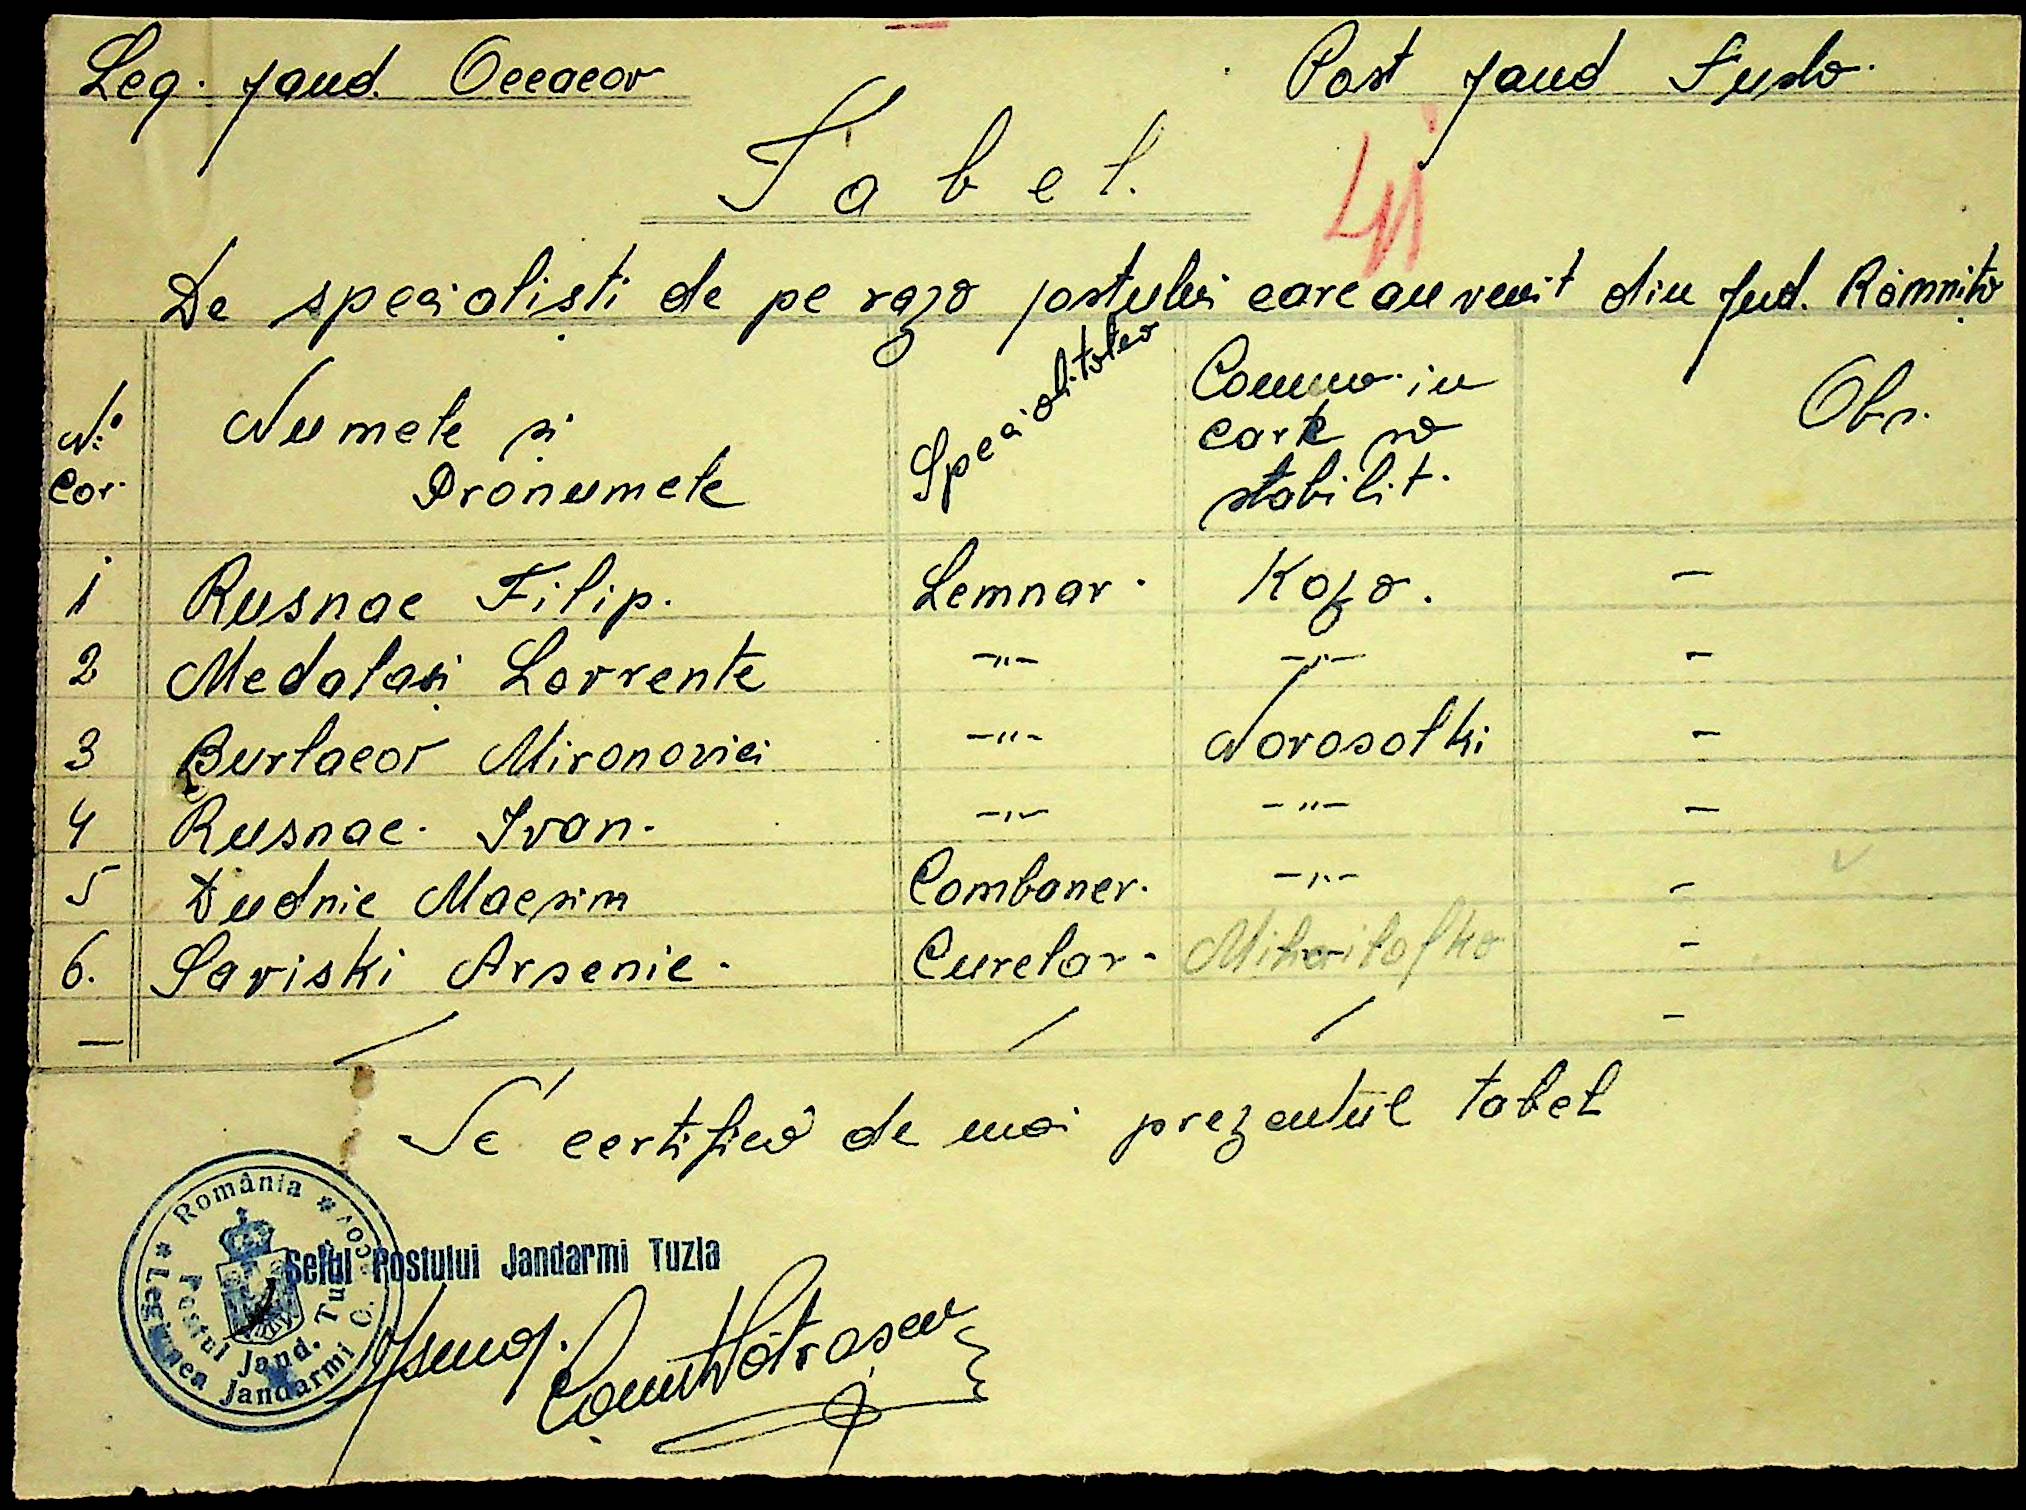 Leg. Jand. Oceacov Post Jand Tusla.
Tabel.
41
De specialiști de pe raza postului care au venit din Jud. Râmnița
No. Cor. Numele și Pronumele Specialitatea Comuna in care sa stabilit. Obs.
1 Rusnac Filip. Lemnar. Koza. -
2 Medalași Lavrente -"- -"- -
3 Burlacov Mironovici -"- Novosolki -
4 Rusnac. Ivan. -"- -"- -
5 Dudnic Macsim Combaner. -"- -
6. Saviski Arsenie. Curelar. Mihailofka -
— / / / -
Se certifică de noi prezentul tabel
* România *
Legiunea Jandarmi O. cov
Postul Jand. Tu
Seful Postului Jandarmi Tuzla